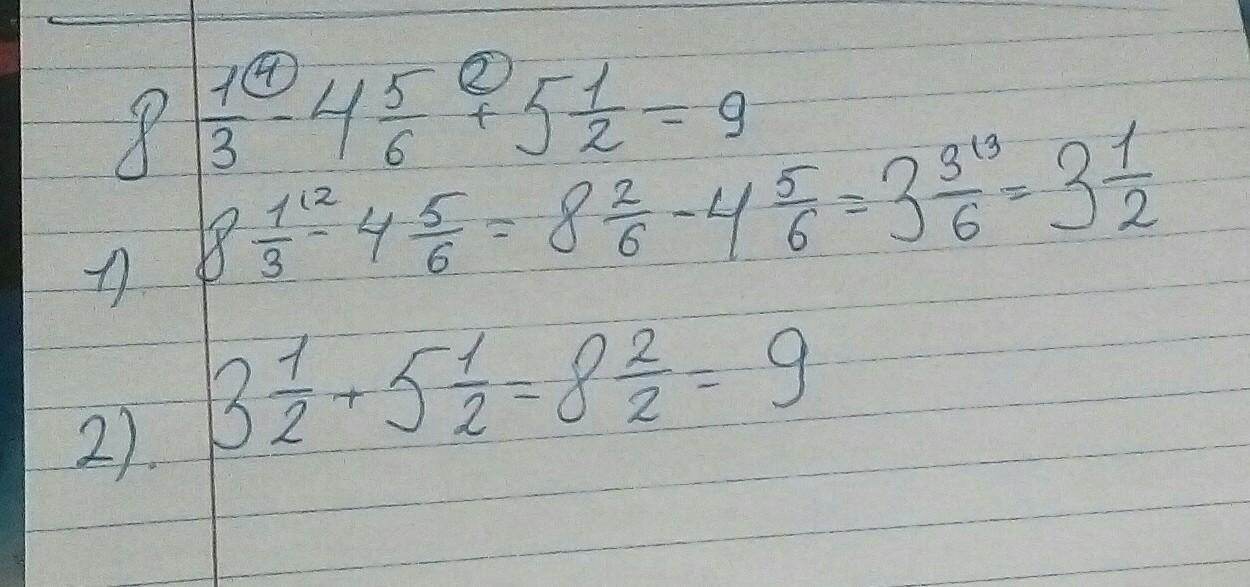 8 1/3 - 4 5/6 + 5 1/2 = 9
1) 8 1/3 - 4 5/6 = 8 2/6 - 4 5/6 = 3 3/6 = 3 1/2
2). 3 1/2 + 5 1/2 = 8 2/2 = 9